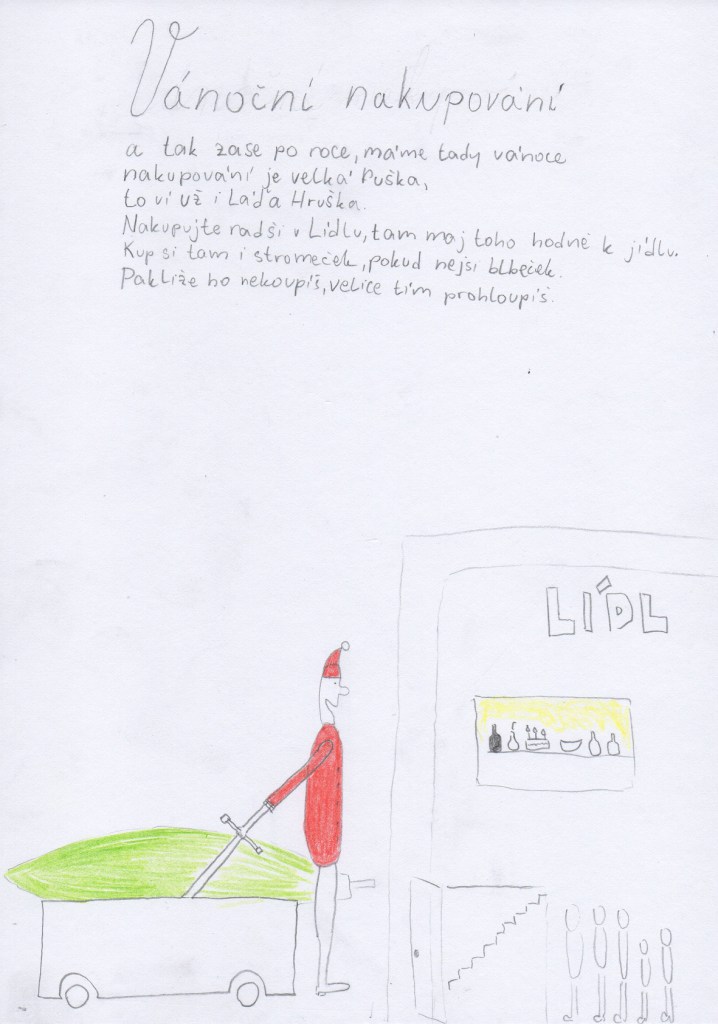 Vánoční nakupování
a tak zase po roce, máme tady vánoce
nakupování je velká Puška,
to ví už i Láďa Hruška.
Nakupujte radši v Lídlu, tam maj toho hodně k jídlu.
Kup si tam i stromeček, pokud nejsi blbeček.
Pakliže ho nekoupíš, velice tím prohloupíš.
LÍDL